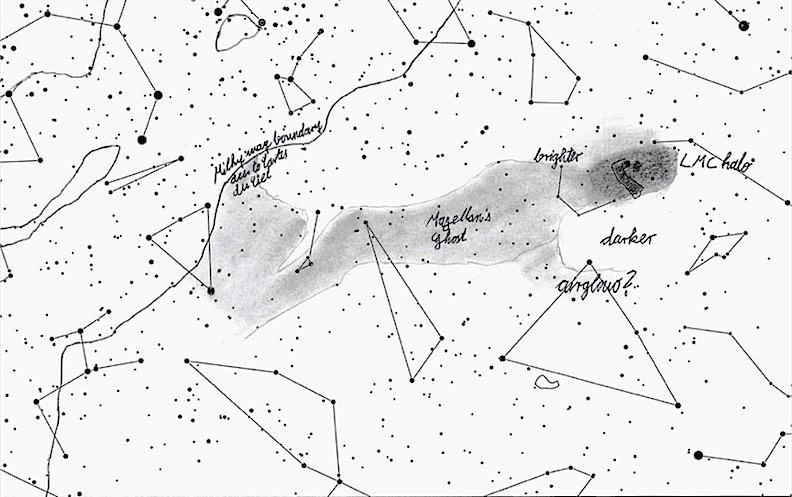 Milky way boundary
du Ciel
brighter
LMC halo
Magellan's
Ghost
darker
airglow?